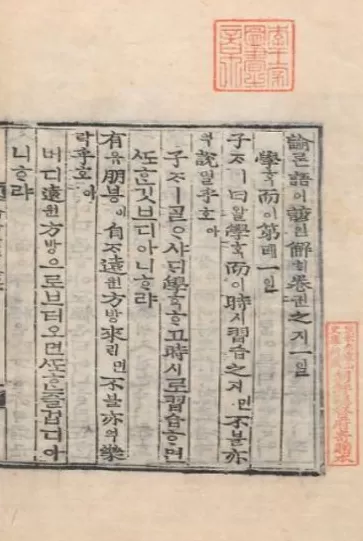 論론語어諺언解ᄒᆡ卷권之지一일
學ᄒᆞᆨ而이第뎨一일
子ᄌᆞㅣ曰왈學ᄒᆞᆨ而이時시習습之지면不블亦
역說열乎호아
子ᄌᆞㅣᄀᆞᆯᄋᆞ샤ᄃᆡ學ᄒᆞᆨᄒᆞ고時시로習습ᄒᆞ면
ᄯᅩᄒᆞᆫ깃브디아니ᄒᆞ랴
有유朋븡이自ᄌᆞ遠원方방來ᄅᆡ면不블亦역樂
락乎호아
버디遠원方방으로브터오면ᄯᅩᄒᆞᆫ즐겁디아
니ᄒᆞ랴
李王家
圖書之章